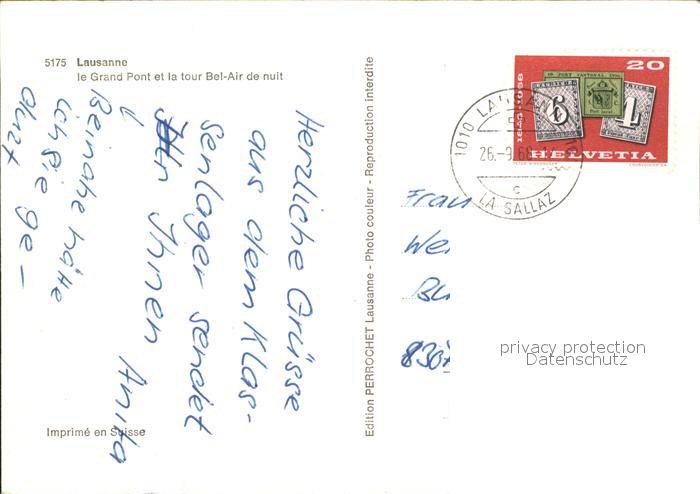 5175 Lausanne
le Grand Pont et la tour Bel-Air de nuit
Herzliche Grüsse
aus dem Klas-
senlager sendet
Ihnen Anita
Beinahe hätte
ich Sie ge-
duzt
Imprimé en Suisse
Edition PERROCHET Lausanne - Photo couleur - Reproduction interdite
20
1843-1968
10 PORT CANTONAL 10
6
4
HELVETIA
1010 LAUSANNE
26.-9.68
C
LA SALLAZ
Frau
We
830
privacy protection
Datenschutz